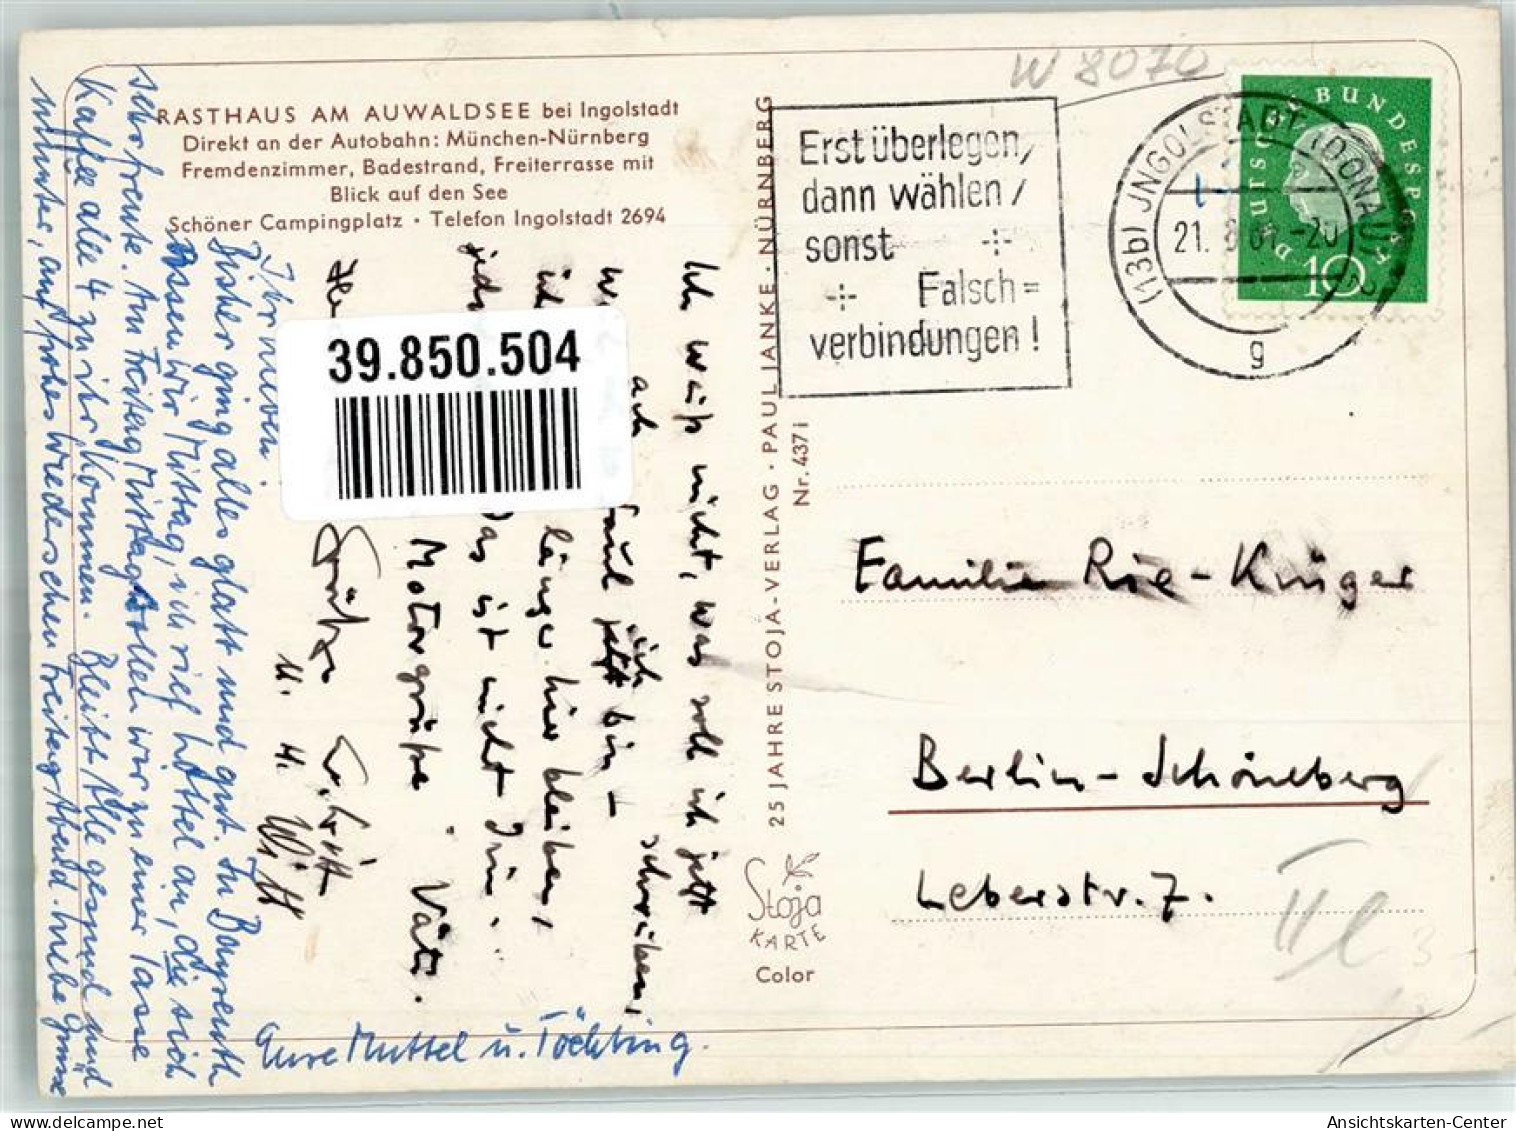 RASTHAUS AM AUWALDSEE bei Ingolstadt
Direkt an der Autobahn: München-Nürnberg
Fremdenzimmer, Badestrand, Freiterrasse mit
Blick auf den See
Schöner Campingplatz · Telefon Ingolstadt 2694
W 8070
Erst überlegen,
dann wählen /
sonst
Falsch=
verbindungen!
(13b) JNGOLSTADT (DONAU) 2
21. 8. 61.-20
g
DEUTSCHE BUNDESPOST
10
39.850.504
25 JAHRE STOJA-VERLAG · PAUL JANKE · NÜRNBERG
Nr. 437 i
Stoja
KARTE
Color
Ich weiß nicht, was soll ich jetzt
schreiben,
ach ich
faul jetzt bin –
länger hier bleiben,
das ist nicht drin ...
Motorgrüße Väti.
Grüße
u. H. Witt
Ihr Lieben.
Bisher ging alles glatt und gut. In Bayreuth
assen wir Mittag, ich rief Hottel an, die sich
sehr freute. Am Freitag Mittag sollen wir zu einer Tasse
Kaffee alle 4 zu ihr kommen. Bleibt alle gesund und
munter, auf frohes Wiedersehen Freitag Abend. Liebe Grüsse
Eure Muttel u. Töchting.
Familie Rie-Krüger
Berlin-Schöneberg
Leberstr. 7.
Ansichtskarten-Center